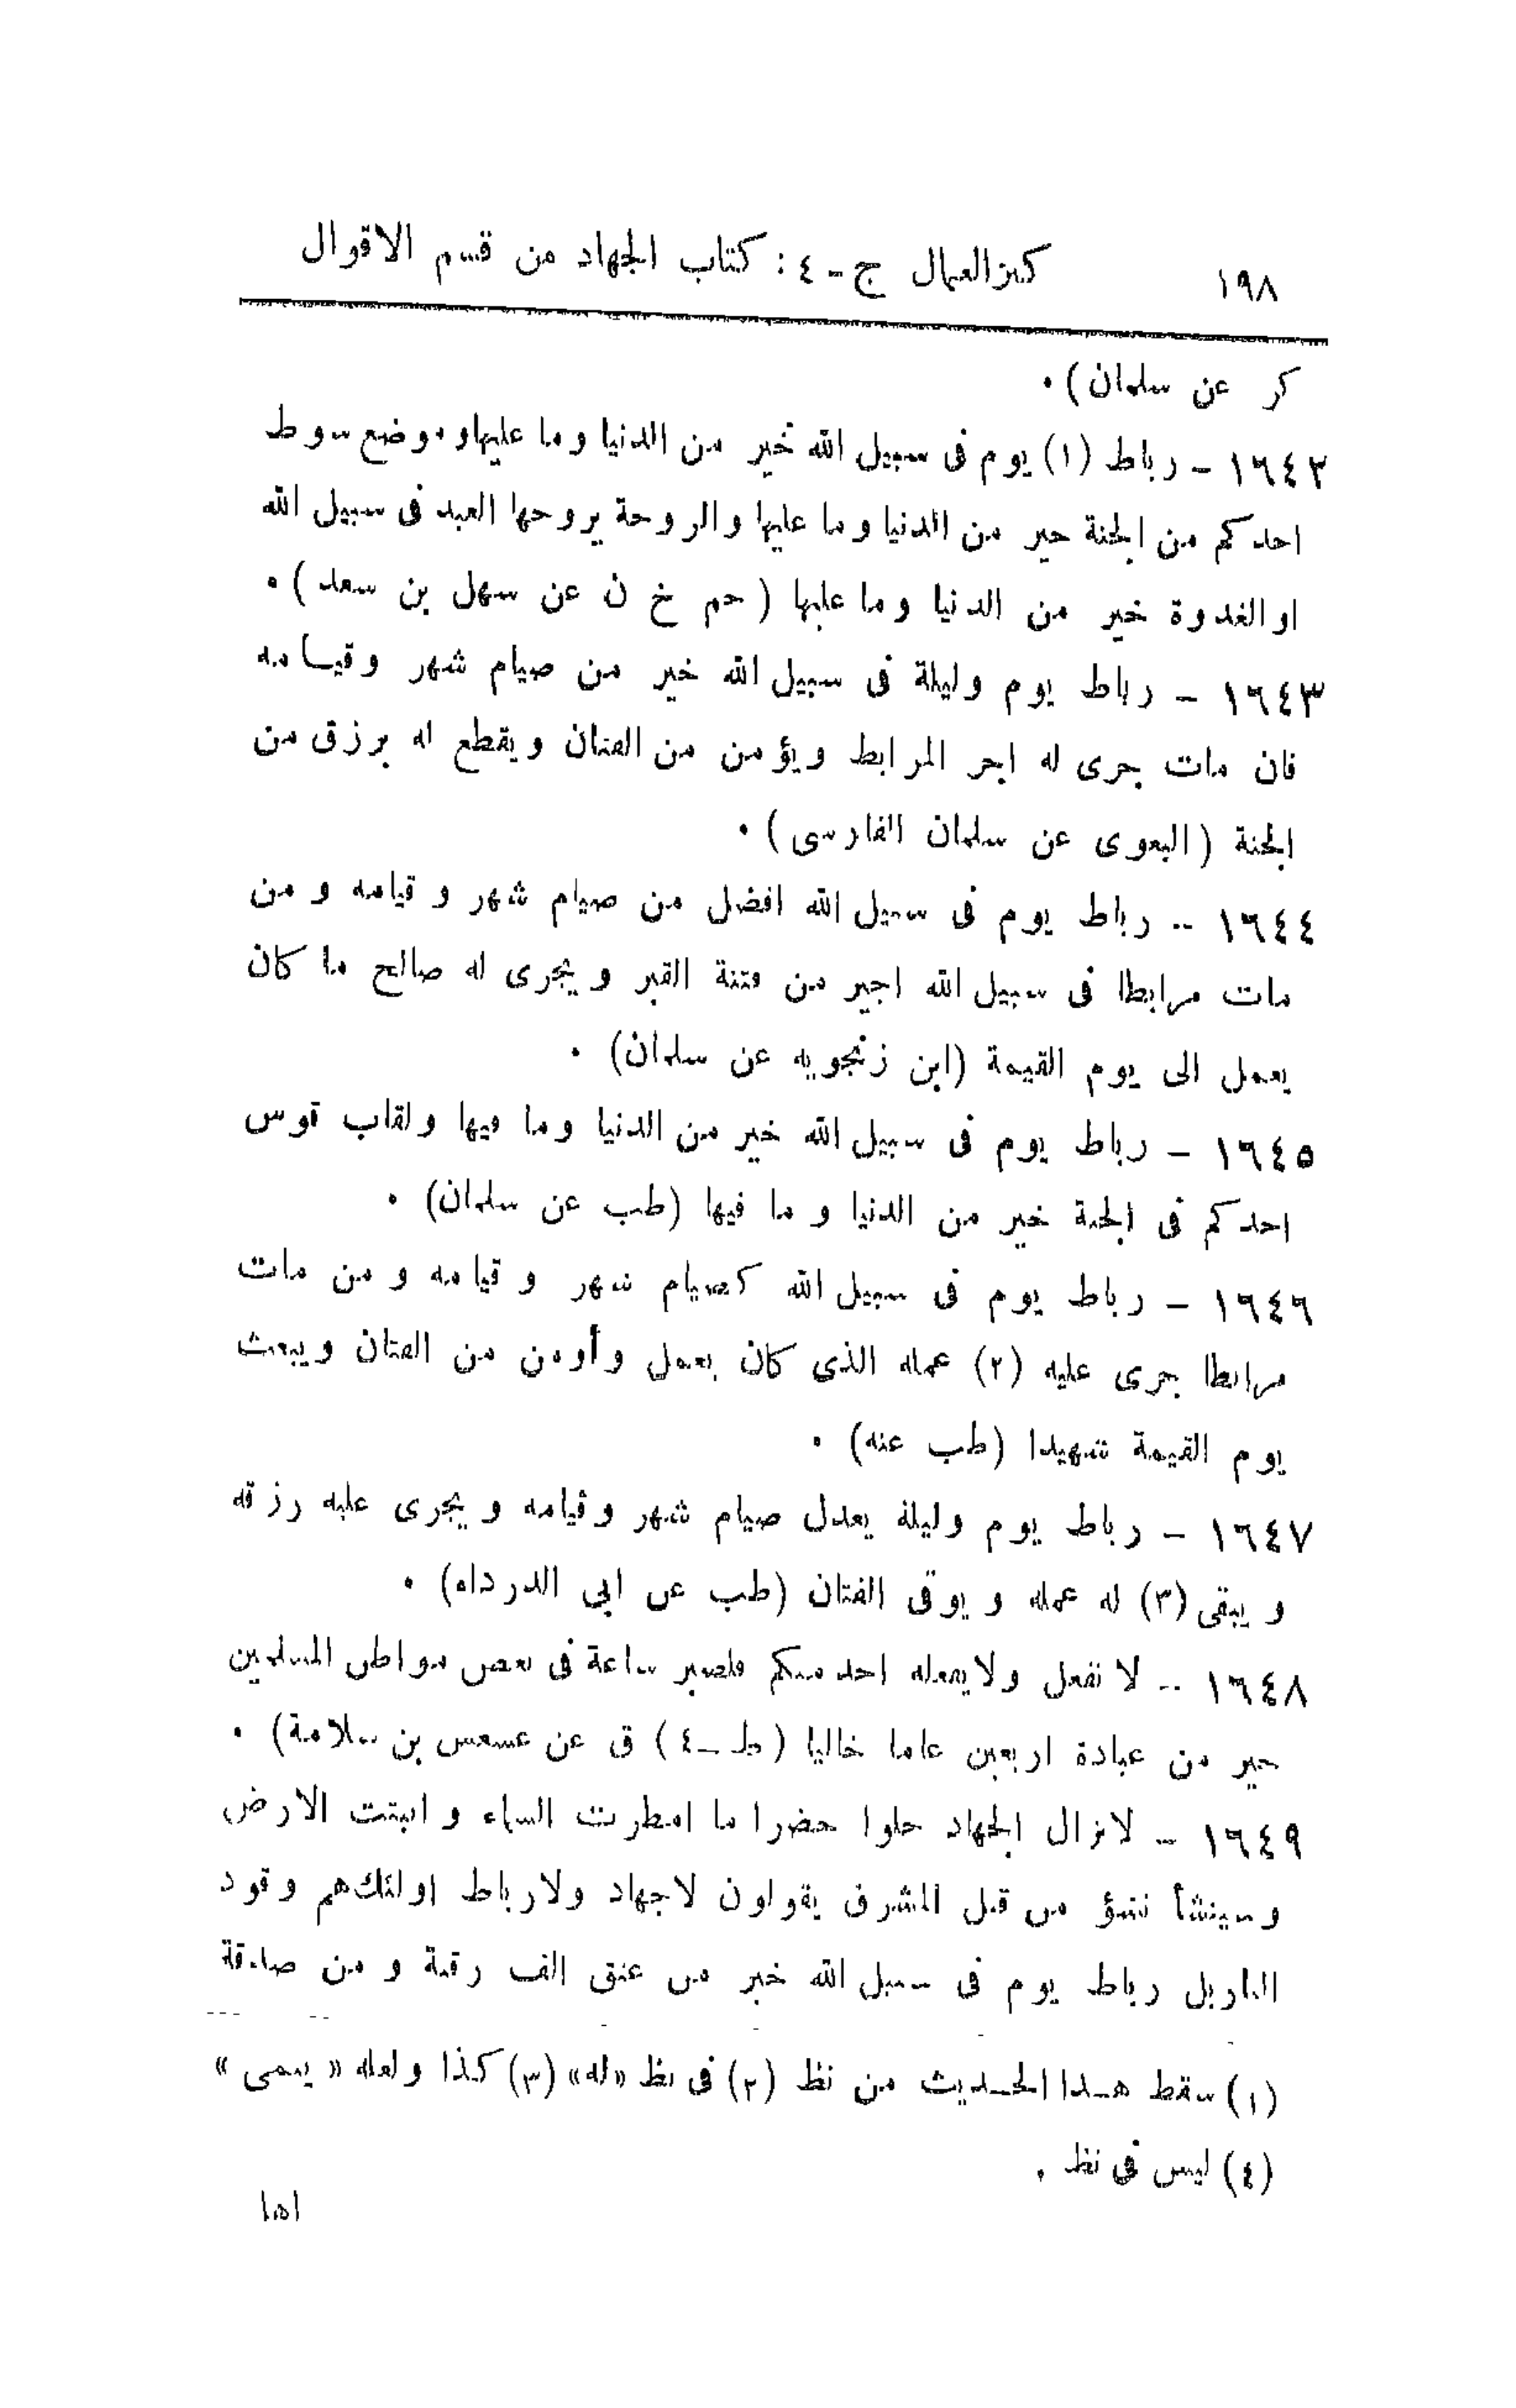 ١٩٨ كنزالعمال ج - ٤ : كتاب الجهاد من قسم الاقوال
كر عن سلمان) ٠
١٦٤٢ - رباط (١) يوم فى سبيل الله خير من الدنيا وما عليها وموضع سوط
احدكم من الجنة خير من الدنيا وما عليها والروحة يروحها العبد فى سبيل الله
او الغدوة خير من الدنيا وما عليها ( حم خ ن عن سهل بن سعد ) ٠
١٦٤٣ - رباط يوم وليلة فى سبيل الله خير من صيام شهر وقيامه
فان مات جرى له اجر المرابط ويؤمن من الفتان ويقطع له برزق من
الجنة ( البغوى عن سلمان الفارسى ) ٠
١٦٤٤ - رباط يوم فى سبيل الله افضل من صيام شهر و قيامه و من
مات مرابطا فى سبيل الله اجير من فتنة القبر و يجرى له صالح ما كان
يعمل الى يوم القيمة (ابن زنجويه عن سلمان) ٠
١٦٤٥ - رباط يوم فى سبيل الله خير من الدنيا وما فيها ولقاب قوس
احدكم فى الجنة خير من الدنيا و ما فيها (طب عن سلمان) ٠
١٦٤٦ - رباط يوم فى سبيل الله كصيام شهر و قيامه و من مات
مرابطا جرى عليه (٢) عمله الذى كان يعمل وأومن من الفتان ويبعث
يوم القيمة شهيدا (طب عنه) ٠
١٦٤٧ - رباط يوم وليلة يعدل صيام شهر وقيامه و يجرى عليه رزقه
و يبقى (٣) له عمله و يوقى الفتان (طب عن ابى الدرداء) ٠
١٦٤٨ - لا تفعل ولا يفعله احد منكم فلصبر ساعة فى بعض مواطن المسلمين
خير من عبادة اربعين عاما خاليا ( ط - ٤ ) ق عن عسعس بن سلامة) ٠
١٦٤٩ - لا يزال الجهاد حلوا خضرا ما امطرت السماء و انبتت الارض
وسينشأ نشؤ من قبل المشرق يقولون لا جهاد ولا رباط اولئك هم وقود
النار بل رباط يوم فى سبيل الله خير من عتق الف رقبة و من صدقة
(١) سقط هـذا الحـديث من نظ (٢) فى نظ «له» (٣) كذا ولعله « ينمى »
(٤) ليس فى نظ .
اهل